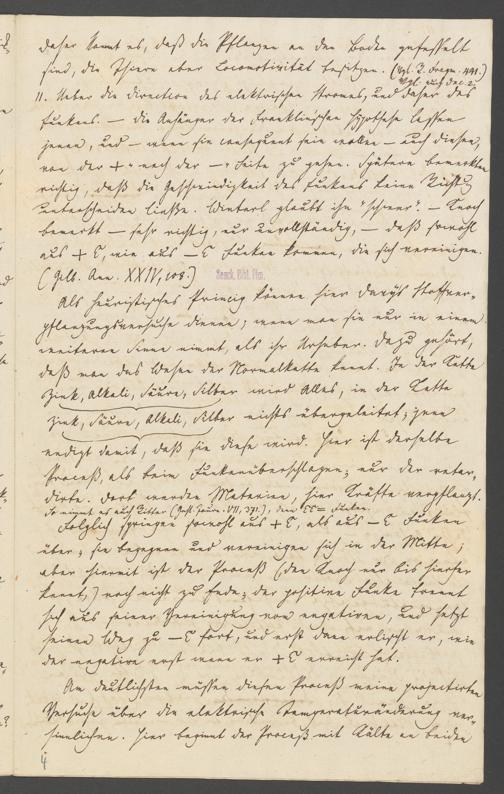 daher kommt es, daß die Pflanzen an den Boden gefesselt
sind, die Thiere aber Locomotivität besitzen. (Vgl. Z. Fragm. 441.)
11. Ueber die Direction des elektrischen Stromes, und daher des
Funkens. — Die Anhänger der Franklinschen Hypothese lassen
jenen, und — wenn sie consequent sein wollen — auch diesen,
von der + nach der — Seite zu gehen. Spätere bemerkten
richtig, daß die Geschwindigkeit des Funkens keine Richtung
unterscheiden ließe. Winterl glaubt ihn "schwer". — Knoch
bemerkt — sehr richtig, nur unvollständig, — daß sowohl
aus + E, wie aus — E Funken kommen, die sich vereinigen.
(Gilb. Ann. XXIV, 108.)
Senck. Bibl. Ffm.
Als heuristisches Princip können hier Davys Stoffver-
pflanzungsversuche dienen; wenn man sie nur in einem
weiteren Sinne nimmt, als ihr Urheber. Dazu gehört,
daß man das Wesen der Normalkette kennt. In der Kette
Zink, Alkali, Säure, Silber wird Alles, in der Kette
Zink, Säure, Alkali, Silber nichts übergeleitet; jene
endigt damit, daß sie diese wird. Hier ist derselbe
Proceß, als beim Funkenüberschlagen; nur der retar-
dirte. Dort werden Materien, hier Kräfte verpflanzt.
So nimmt es auch Ritter (Gehl. Journ. VII, 371.), den
Folglich springen sowohl aus + E, als aus — E Funken
über; sie begegnen und vereinigen sich in der Mitte;
aber hiermit ist der Proceß (den Knoch nur bis hierher
kennt,) noch nicht zu Ende; der positive Funke trennt
sich aus seiner Vereinigung vom negativen, und setzt
seinen Weg zu — E fort, und erst dann erlischt er, wie
der negative erst wenn er + E erreicht hat.
Am deutlichsten müssen diesen Proceß meine projectirten
Versuche über die elektrische Temperaturänderung ver-
sinnlichen. Hier beginnt der Proceß mit Kälte an beiden
4